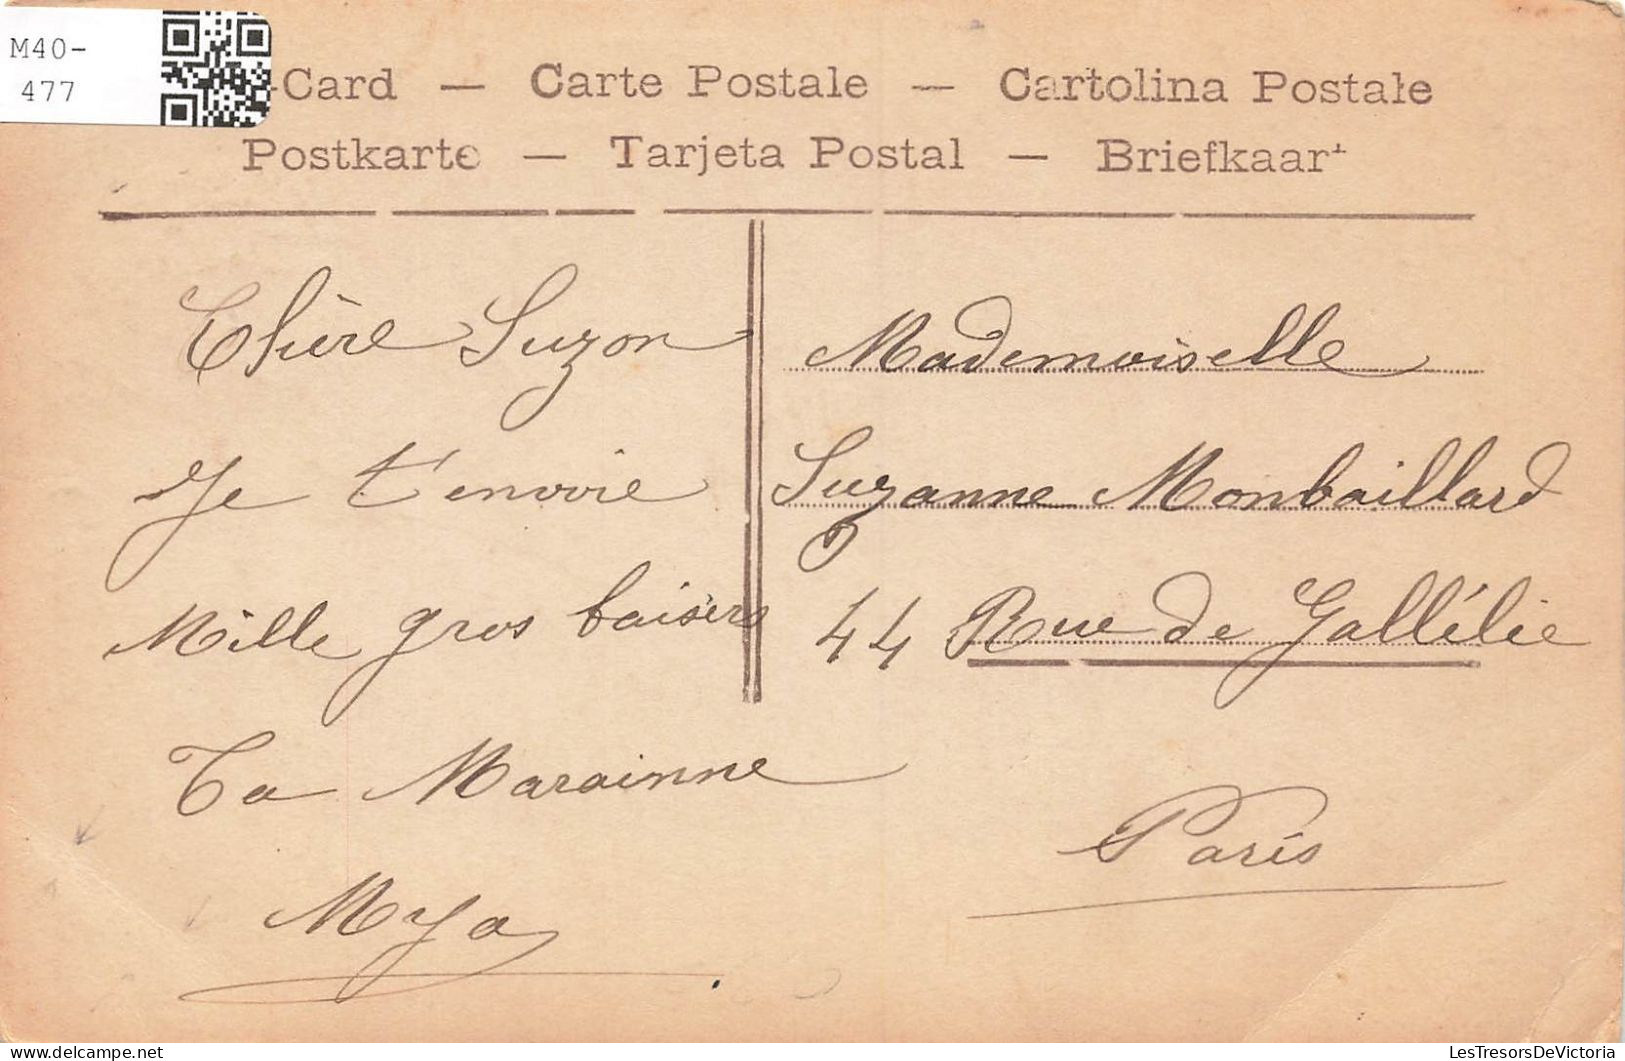 M40-
477
-Card — Carte Postale — Cartolina Postale
Postkarte — Tarjeta Postal — Briefkaart
Chère Suzon
Je t'envoie
Mille gros baisers
Ta Marainne
Mya
Mademoiselle
Suzanne Monbaillard
44 Rue de Gallélie
Paris
LesTresorsDeVictoria